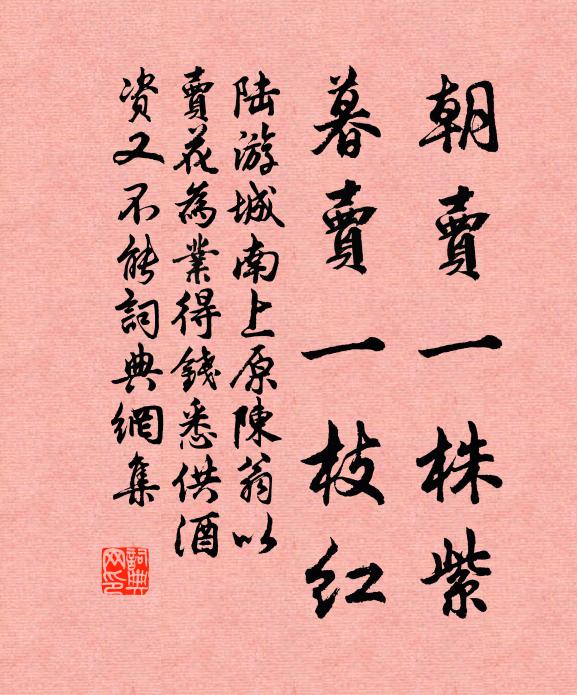 朝賣一株紫
暮賣一枝紅
陆游城南上原陳翁以
賣花為業得錢悉供酒
资又不能詞典網集
詞典网印